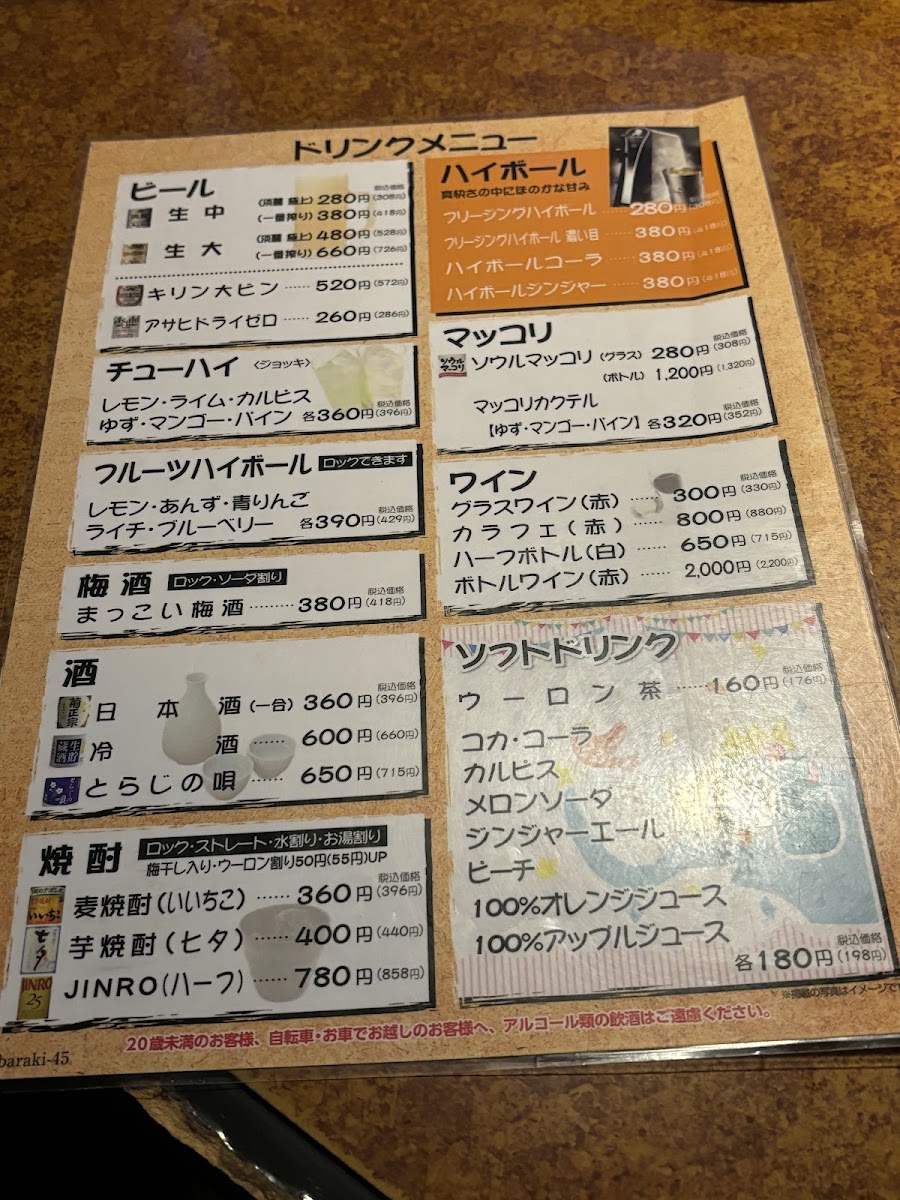 ドリンクメニュー
ビール
税込価格
生中 (淡麗 極上) 280円(308円)
(一番搾り) 380円(418円)
生大 (淡麗 極上) 480円(528円)
(一番搾り) 660円(726円)
キリン大ビン …… 520円(572円)
アサヒドライゼロ …… 260円(286円)
チューハイ 〈ジョッキ〉
レモン・ライム・カルピス
税込価格
ゆず・マンゴー・パイン 各360円(396円)
フルーツハイボール ロックできます
レモン・あんず・青りんご
税込価格
ライチ・ブルーベリー 各390円(429円)
梅酒 ロック・ソーダ割り
税込価格
まっこい梅酒 ……… 380円(418円)
酒
税込価格
菊正宗 日本酒(一合) 360円(396円)
生貯蔵酒 冷酒 …… 600円(660円)
とらじの唄 …… 650円(715円)
焼酎 ロック・ストレート・水割り・お湯割り
梅干し入り・ウーロン割り50円(55円)UP
税込価格
いいちこ 麦焼酎(いいちこ) …… 360円(396円)
七夕 芋焼酎(七夕) …… 400円(440円)
JINRO 25 JINRO(ハーフ) …… 780円(858円)
ハイボール
爽快さの中にほのかな甘み
フリージングハイボール …… 280円(308円)
フリージングハイボール 濃い目 …… 380円(418円)
ハイボールコーラ …… 380円(418円)
ハイボールジンジャー …… 380円(418円)
マッコリ
税込価格
ソウルマッコリ ソウルマッコリ (グラス) 280円(308円)
(ボトル) 1,200円(1,320円)
マッコリカクテル
税込価格
【ゆず・マンゴー・パイン】 各320円(352円)
ワイン
税込価格
グラスワイン(赤) …… 300円(330円)
カラフェ(赤) …… 800円(880円)
ハーフボトル(白) …… 650円(715円)
ボトルワイン(赤) …… 2,000円(2,200円)
ソフトドリンク
税込価格
ウーロン茶 …… 160円(176円)
コカ・コーラ
カルピス
メロンソーダ
ジンジャーエール
ピーチ
100%オレンジジュース
100%アップルジュース
税込価格
各180円(198円)
※掲載の写真はイメージで
20歳未満のお客様、自転車・お車でお越しのお客様へ、アルコール類の飲酒はご遠慮ください。
baraki-45